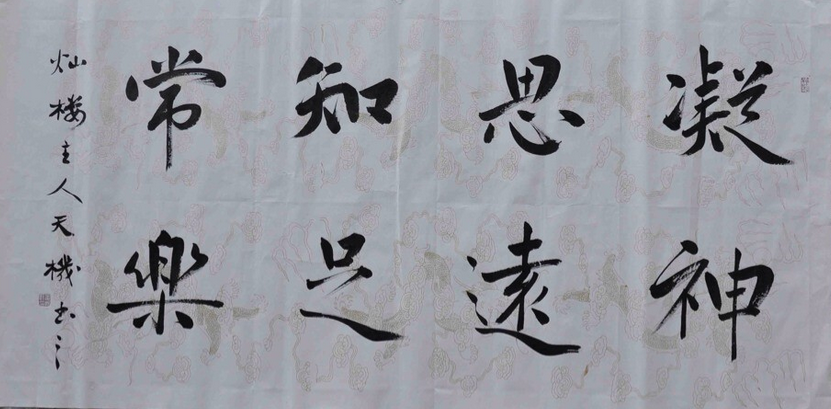 凝神
思遠
知足
常樂
灿楼主人天機书之